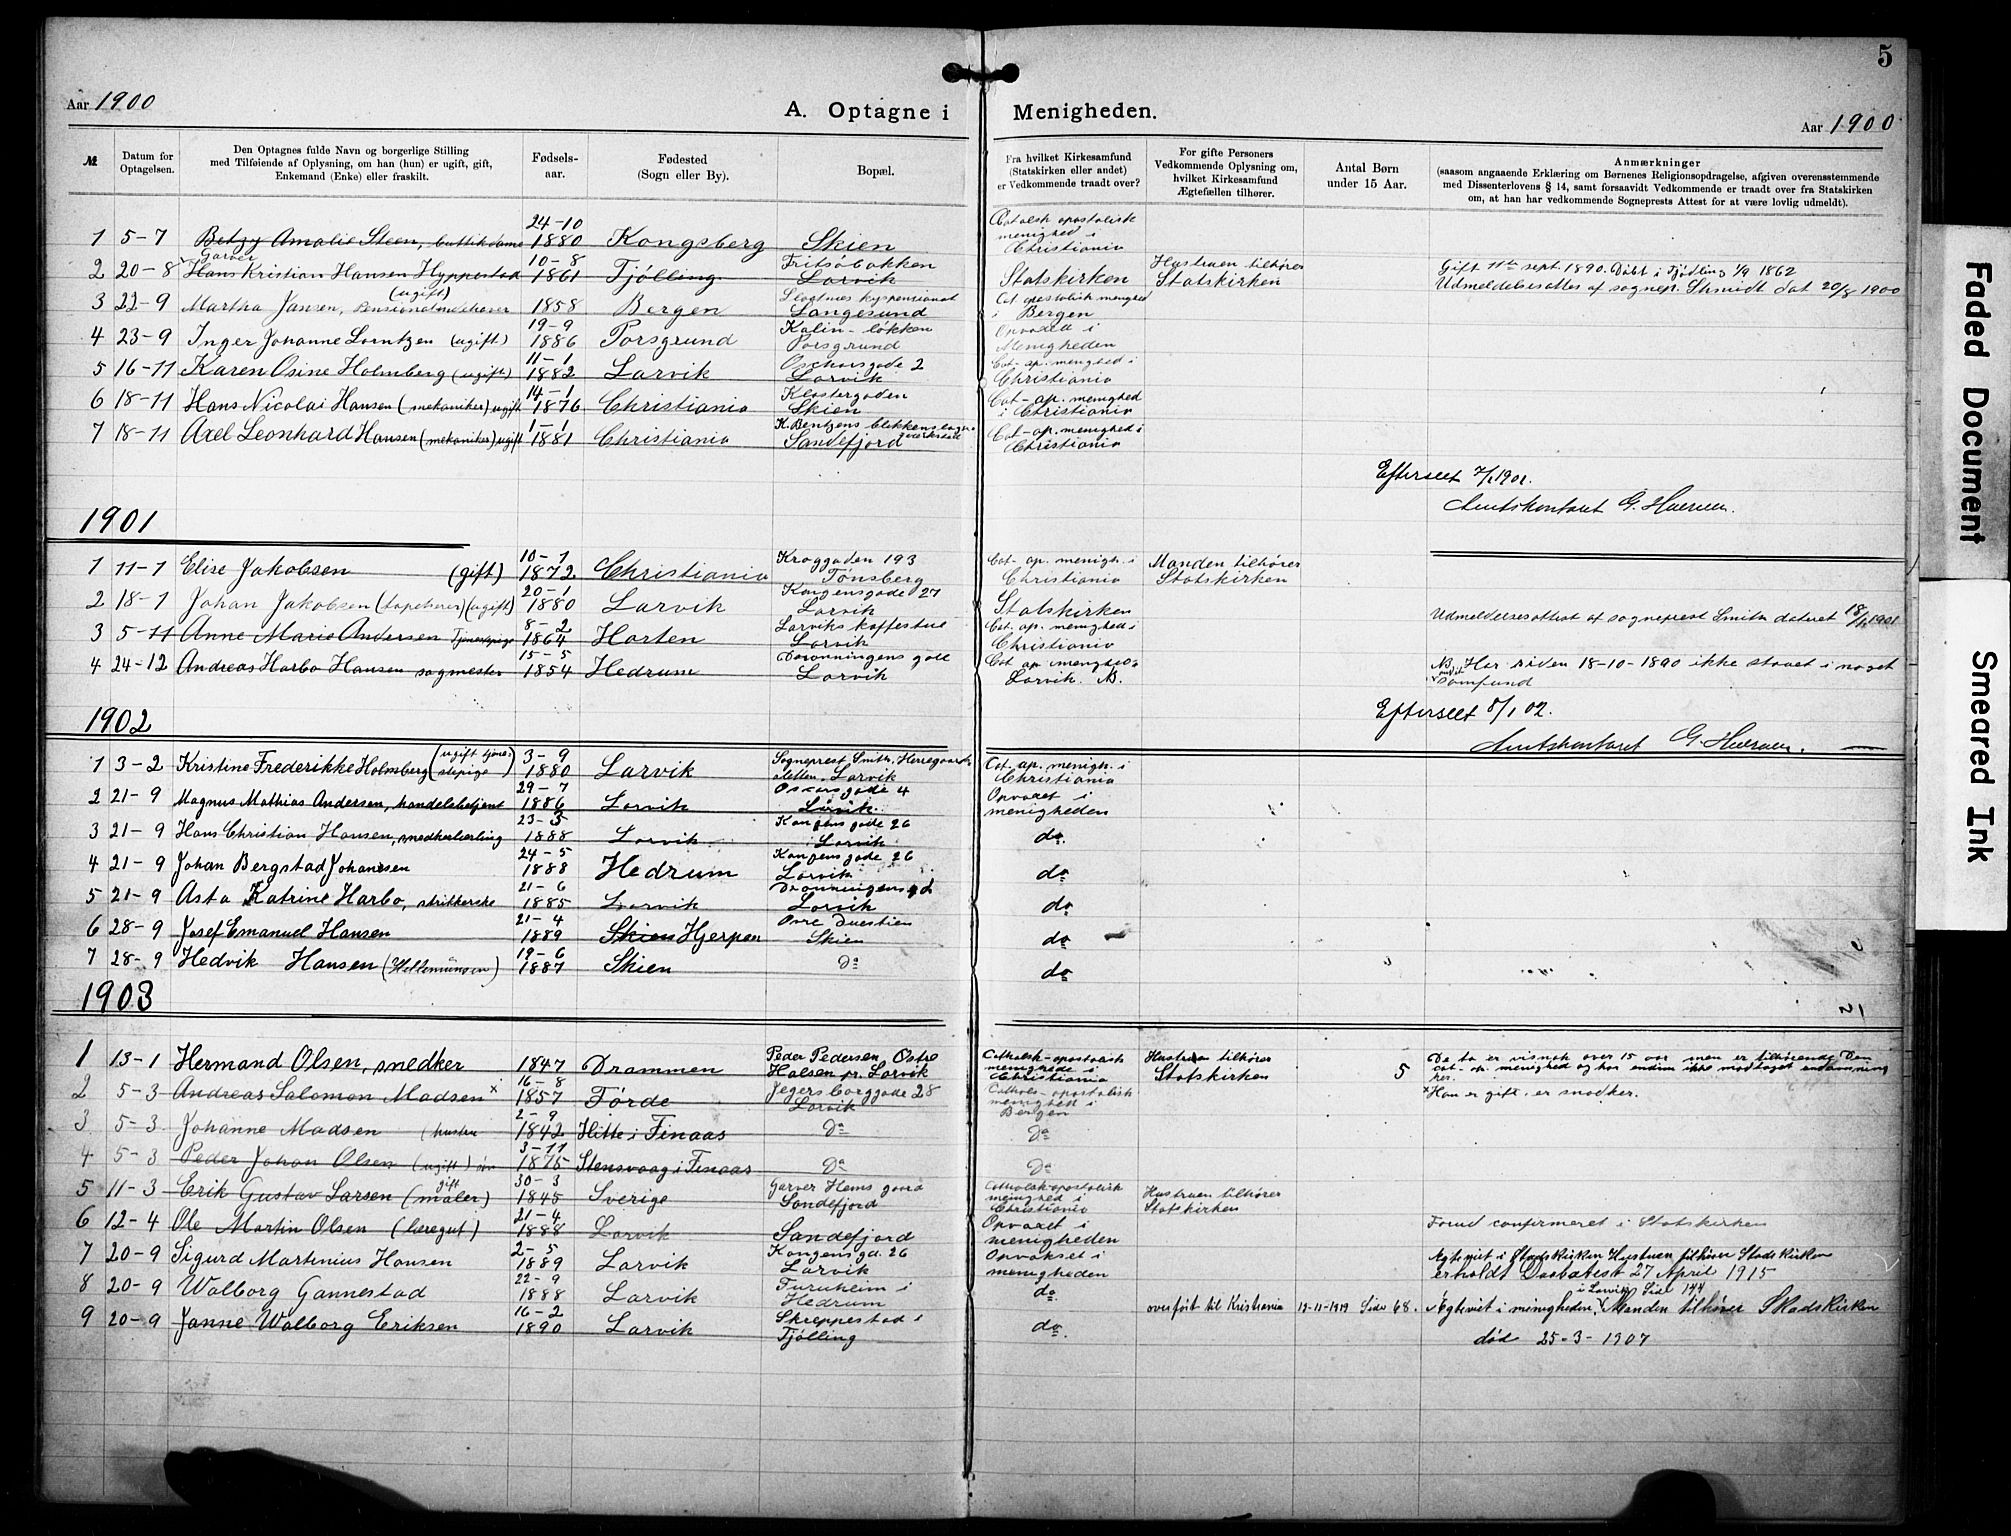 5
Aar 1900
A. Optagne i Menigheden.
Aar 1900
№
Datum for Optagelsen.
Den Optagnes fulde Navn og borgerlige Stilling
med Tilføiende af Oplysning, om han (hun) er ugift, gift,
Enkemand (Enke) eller fraskilt.
Fødsels-
aar.
Fødested
(Sogn eller By).
Bopæl.
Fra hvilket Kirkesamfund
(Statskirken eller andet)
er Vedkommende traadt over?
For gifte Personers
Vedkommende Oplysning om,
hvilket Kirkesamfund
Ægtefællen tilhører.
Antal Børn
under 15 Aar.
Anmærkninger
(saasom angaaende Erklæring om Børnenes Religionsopdragelse, afgiven overensstemmende
med Dissenterlovens § 14, samt forsaavidt Vedkommende er traadt over fra Statskirken
om, at han har vedkommende Sogneprests Attest for at være lovlig udmeldt).
1 5-7 Betzy Amalie Steen, butikdame 24-10 1880 Kongsberg Skien Catolsk apostolisk menighed i Christiania
2 20-8 Garver Hans Kristian Hansen Hyppestad 10-8 1861 Tjölling Fritsöbakken Larvik Statskirken Hustruen tilhører Statskirken Gift 11te sept. 1890. Döbt i Tjödling 1/9 1862
Udmeldelsesattes af sognepr. Schmidt dat 20/8 1900
3 22-9 Martha Jansen, (ugift) 1858 Bergen Langesund Cat. apostolisk menghed i Bergen
4 23-9 Inger Johanne Lorntzen (ugift) 19-9 1886 Porsgrund Kalin-lökken Porsgrund Opvoxett i Menigheden
5 16-11 Karen Osine Holmberg (ugift) 11-1 1882 Larvik Oscharsgade 2 Larvik Cat-ap. menghed i Christiania
6 18-11 Hans Nicolai Hansen (mekaniker) ugift 14-1 1876 Christiania Klostergaden Skien Cat-ap. menighed i Christiania
7 18-11 Axel Leonhard Hansen (mekaniker) ugift 1-1 1881 Christiania K. Bentzens Sandefjord Cat-ap. menighed i Christiania
Efterseet 7/1 1901.
Amtskontoret G.
1901
1 11-1 Elise Jakobsen (gift) 10-1 1872 Christiania Kroggaden 193 Tönsberg Cat-ap. menigh. i Christiania Manden tilhører Statskirken
2 18-1 Johan Jakobsen (tapetserer) (ugift) 20-1 1880 Larvik Kongensgade 27 Larvik Statskirken Udmeldersesattest af sogneprest Smith dateret 18/1 1901
3 5-11 Anne Marie Andersen Tjenestepige 8-2 1864 Horten Larviks kaffestue Larvik Cat. ap. menghed i Christiania
4 24-12 Andreas Harbo Hansen sagmester 15-5 1854 Hedrum Dronningens gade Larvik Cat. ap. menghed i Larvik. NB. NB. Har siden 18-10-1890 ikke staaet i noget
andet samfund
Efterseet 8/1 02.
Amtskontoret G.
1902
1 3-2 Kristine Frederikke Holmberg (ugift tjenestepige) 3-9 1880 Larvik Sogneprest Smith, Herregaards sletten Larvik Cat. ap. menigh. i Christiania
2 21-9 Magnus Mathias Andersen, handelsbetjent 29-7 1886 Larvik Oscarsgade 4 Larvik Opvoxet i menigheden
3 21-9 Hans Christian Hansen, snedkerlærling 23-3 1888 Larvik Kongensgade 26 Larvik do.
4 21-9 Johan Bergstad Johansen 24-5 1888 Hedrum Kongensgade 26 Larvik do
5 21-9 Asta Katrine Harbo, strikkerske 21-6 1885 Larvik Dronningens gd Larvik do
6 28-9 Josef Emanuel Hansen 21-4 1889 Skien Hjerpen Övre Duestien Skien do
7 28-9 Hedvik Hansen 19-6 1887 Skien do do
1903
1 13-1 Hermand Olsen, snedker 1847 Drammen Peder Pedersen, Östre Halsen pr. Larvik Catholsk-apostolisk menighede i Christiania Hustruen tilhører Statskirken 5 De to er visnok over 15 aar men er tilhørende Den
cat.-ap. menighed og har endnu ikke modtaget
2 5-3 Andreas Salomon Madsen x 16-8 1857 Förde Jegersborggade 28 Larvik Cathols-apostolisk menighett i Bergen x Han er gift, er snedker.
3 5-3 Johanne Madsen (hustru 2-9 1842 Hitte i Finaas do do
4 5-3 Peder Johan Olsen (ugift) 3-11 1875 Stensvaag i Finaas do do
5 11-3 Erik Gustav Larsen (maler) gift 30-3 1845 Sverige Garver Hems gaard Sandefjord Catholsk-apostolisk menighed i Christiania Hustruen tilhører Statskirken
6 12-4 Ole Martin Olsen (læregut) 21-4 1888 Larvik Sandefjord Opvoxet i menigheden Forud confirmeret i Statskirken
7 20-9 Sigurd Martinius Hansen 2-5 1889 Larvik Kongensgd. 26 Larvik Opvokset i menigheden Ægteviet i Stadskirken Hustruen tilhører Stadskirken
erholdt Daabatest 27 April 1915
8 20-9 Walborg Gannestad 22-9 1888 Larvik Furuheim i Hedrum do. overfört til Kristiania 12-11-1919 Side 68. Ægteviet i menigheden i Larvik, Side 144 Manden tilhører Stadskirken
9 20-9 Janne Walborg Eriksen 16-2 1890 Larvik Skreppestad i Tjölling do. död 25-3-1907
Faded Document
Smeared Ink